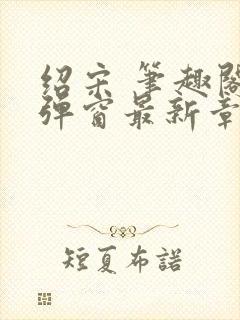 绍宋 笔趣阁
弹窗最新章
短夏布諾